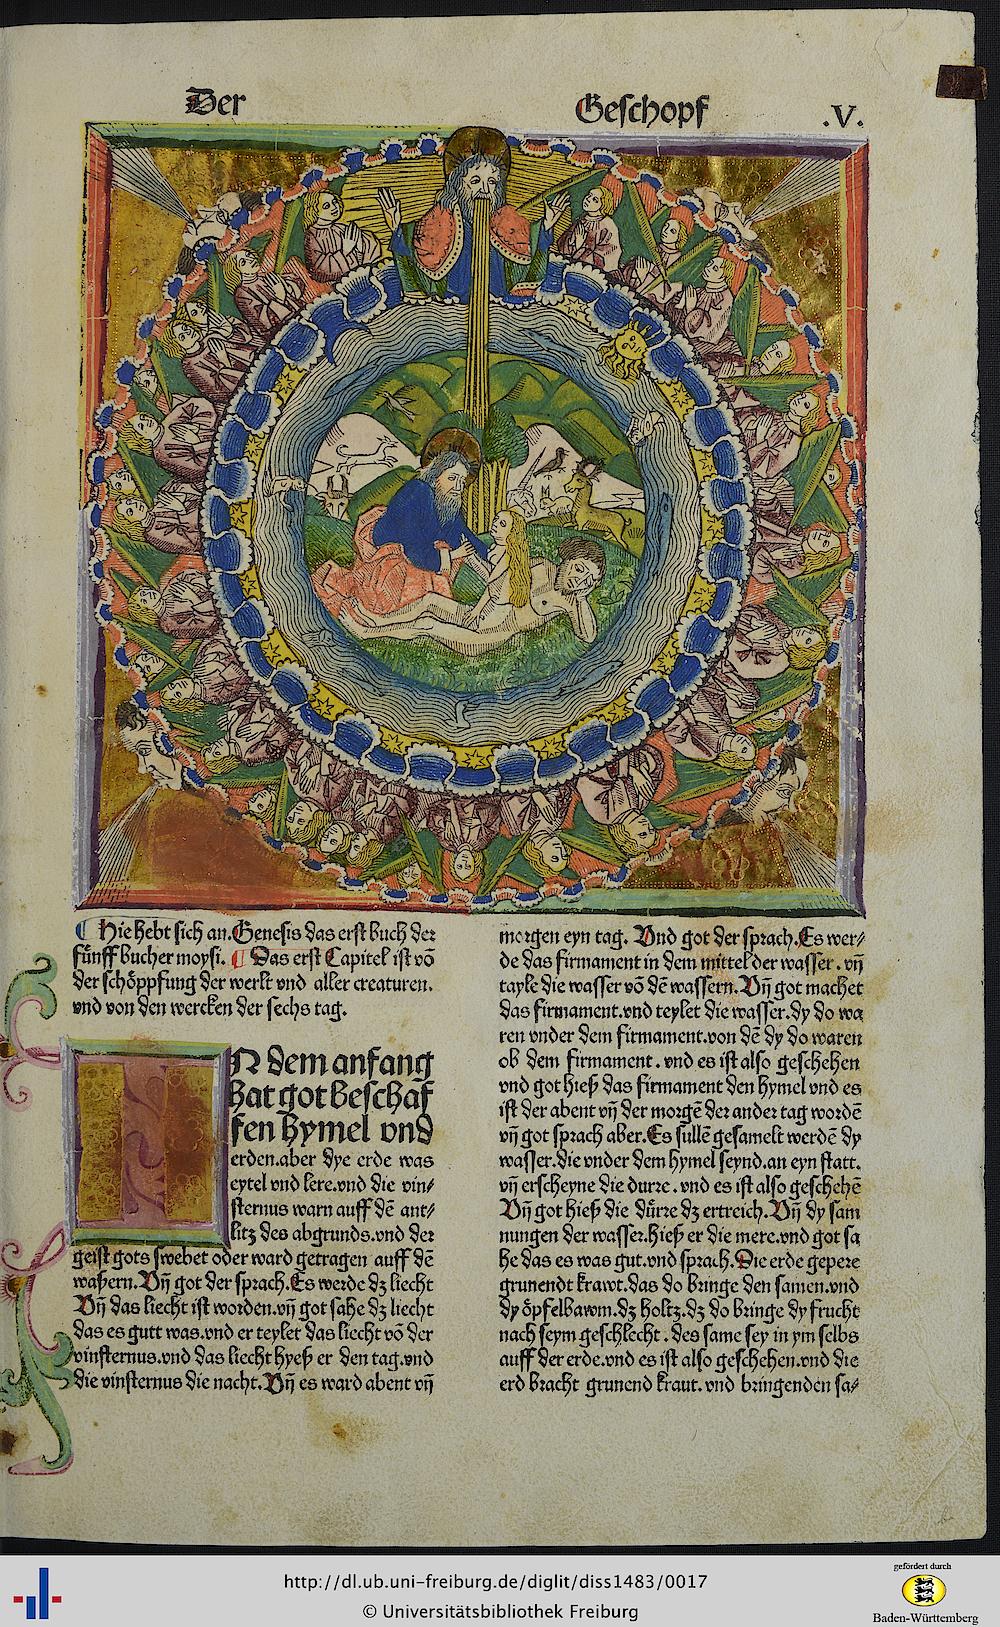 Der Geschopf .V.
Hie hebt sich an. Genesis das erst buch der
fünff bucher moysi. Das erst Capitel ist vō
der schöppfung der werlt vnd aller creaturen.
vnd von den wercken der sechs tag.
IN dem anfang
hat got beschaf
fen hymel vnd
erden. aber dye erde was
eytel vnd lere. vnd die vin⸗
sternus warn auff dē ant⸗
litz des abgrunds. vnd der
geist gots swebet oder ward getragen auff dē
waſſern. Vn̄ got der sprach. Es werde dz liecht
Vn̄ das liecht ist worden. vn̄ got sahe dz liecht
das es gutt was. vnd er teylet das liecht vō der
vinsternus. vnd das liecht hyeß er den tag. vnd
die vinsternus die nacht. Vn̄ es ward abent vn̄
morgen eyn tag. Vnd got der sprach. Es wer⸗
de das firmament in dem mittel der wasser. vn̄
tayle die wasser vō dē wassern. Vn̄ got machet
das firmament. vnd teylet die wasser. dy do wa
ren vnder dem firmament. von dē dy do waren
ob dem firmament. vnd es ist also geschehen
vnd got hieß das firmament den hymel vnd es
ist der abent vn̄ der morgē der ander tag wordē
vn̄ got sprach aber. Es süllē gesamelt werdē dy
wasser. die vnder dem hymel seynd. an eyn statt.
vn̄ erscheyne die durre. vnd es ist also geschehē
Vn̄ got hieß die dürre dz ertreich. Vn̄ dy sam
nungen der wasser. hieß er die mere. vnd got sa
he das es was gut. vnd sprach. Die erde gepere
grunendt krawt. das do bringe den samen. vnd
dy öpfelbawm. dz holtz. dz do bringe dy frucht
nach seym geschlecht. des same sey in ym selbs
auff der erde. vnd es ist also geschehen. vnd die
erd bracht grunend kraut. vnd bringenden sa⸗
http://dl.ub.uni-freiburg.de/diglit/diss1483/0017
© Universitätsbibliothek Freiburg
gefördert durch
Baden-Württemberg